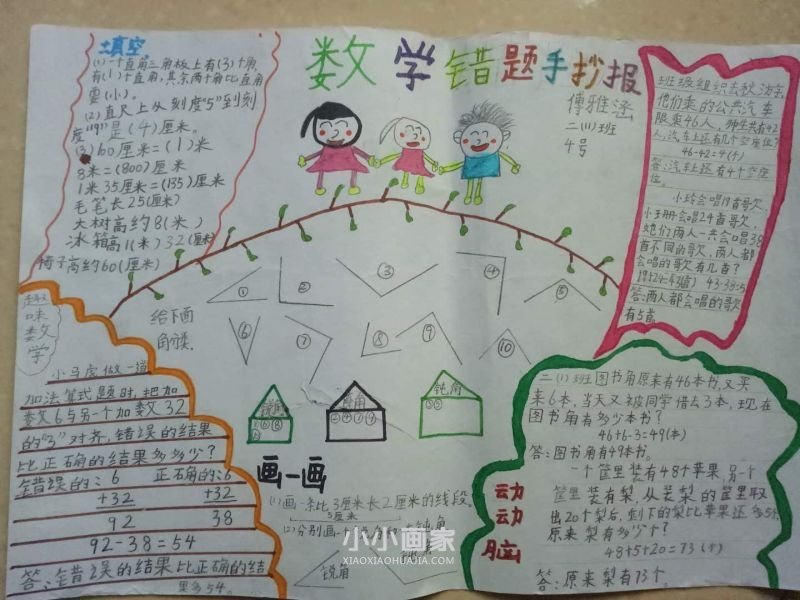 数学错题手抄报
傅雅涵
二(11)班
4号
填空
(1)一个直角三角板上有(3)个角
有(1)个直角,其余两个角比直角
要(小).
(2)直尺上从刻度"5"到刻
度"9"是(4)厘米。
(3)60厘米=(1)米
8米=(800)厘米
1米35厘米=(135)厘米
毛笔长25(厘米)
大树高约8(米)
冰箱高1(米)32(厘米)
椅子高约60(厘米)
班级组织去秋游,
他们乘的公共汽车
限乘46人,师生共有42
人,汽车上还有几个空座位?
46-42=4(个)
答:汽车上还有4个空座
位。
小玲会唱19首歌欠
小王册会唱24首哥欠,
她们两人一共会唱38
首不同的歌欠,两人都
会唱的歌有几首?
19+24=43(首) 43-38=5
答:两人都会唱的歌欠
有5首.
给下面
角分类.
①
②
③
④
⑤
⑥
⑦
⑧
⑨
⑩
锐角
直角
钝角
趣味数学
小马虎做一道
加法算式题时,把加
数6与另一个加数32
的"3"对齐,错误的结果
比正确的结果多多少?
错误的:6 正确的:6
+32 +32
92 38
92-38=54
答:错误的结果比正确的结
果多54。
画一画
(1)画一条比3厘米长2厘米的线段。
5厘米
(2)分别画一
钝角
锐角
动动脑
二(1)班图书角原来有46本书,又买
来6本,当天又被同学借去3本,现在
图书角有多少本书?
46+6-3=49(本)
答:图书角有49本书。
一个筐里装有48个苹果,另一个
筐里装有梨,从装梨的筐里取
出20个梨后,剩下的梨比苹果还多5个,
原来梨有多少个?
48+5+20=73(个)
答:原来梨有73个.
小小画家
XIAOXIAOHUAJIA.COM